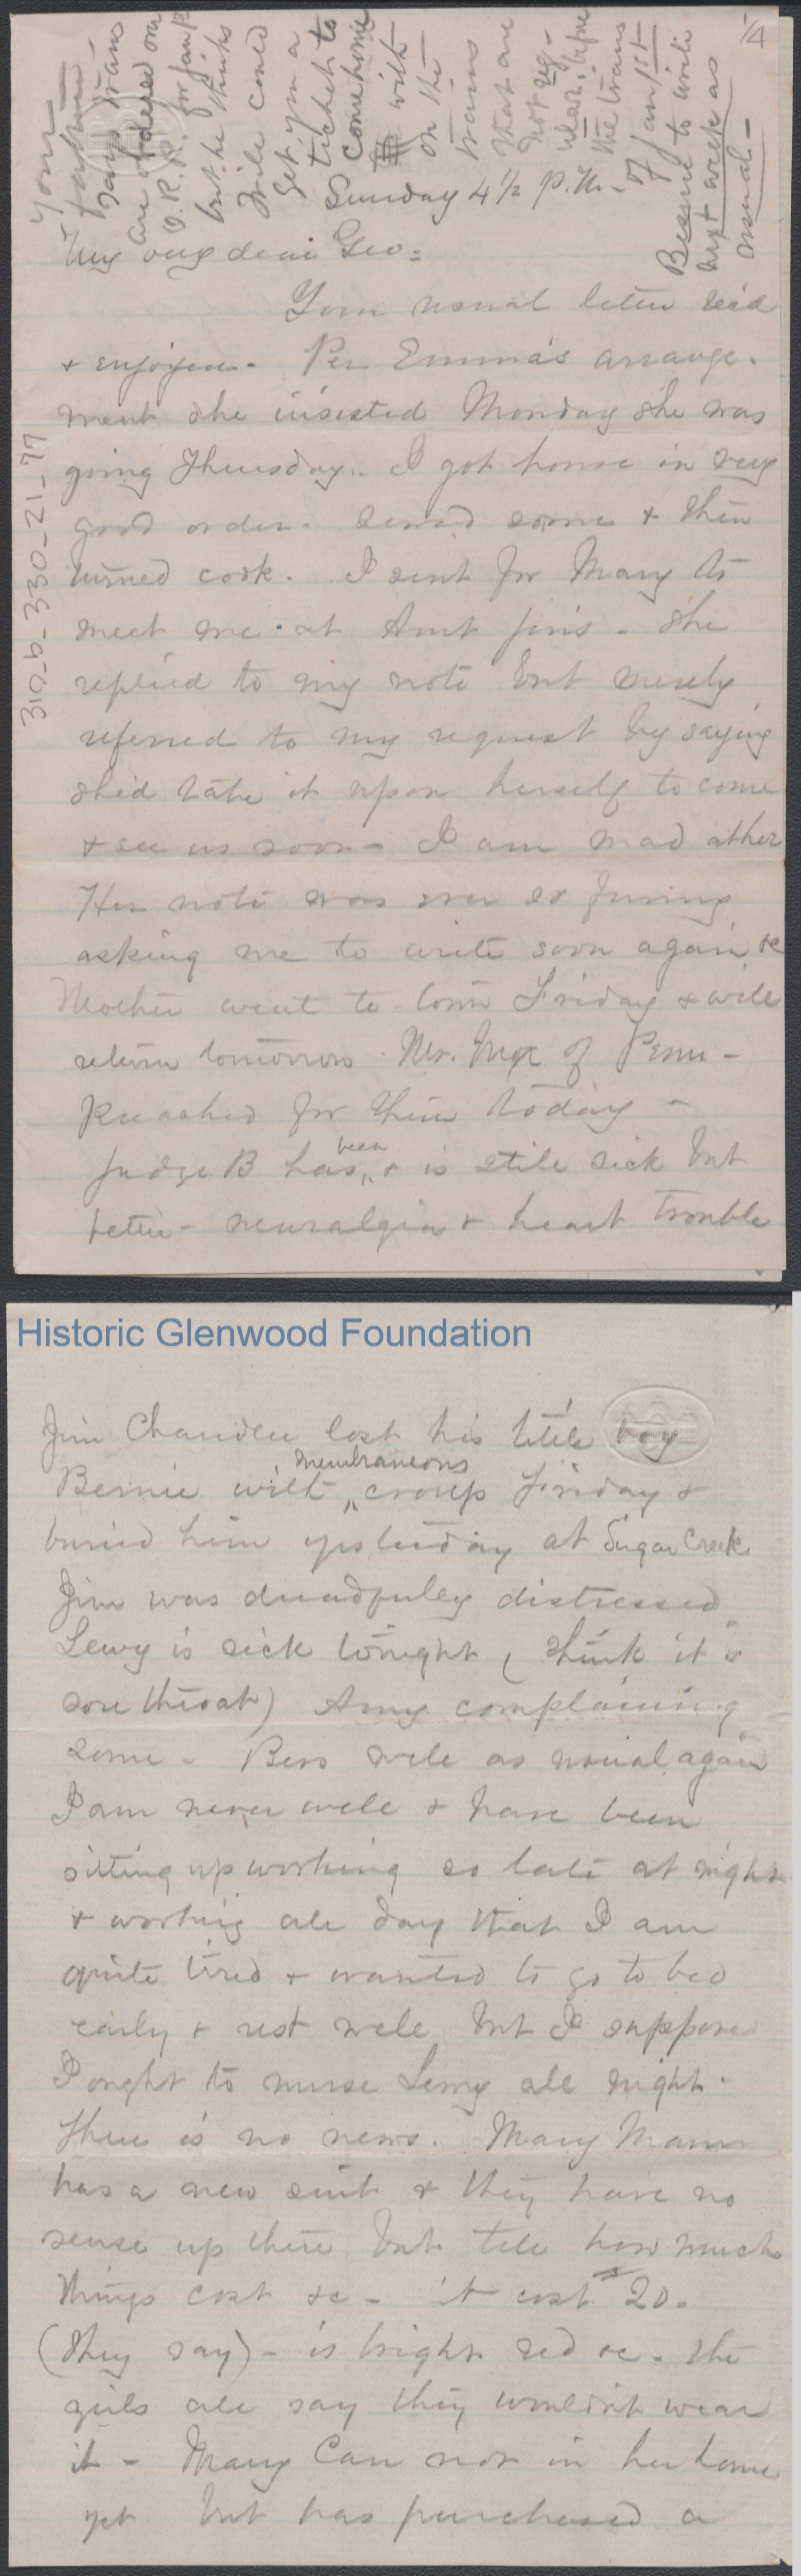 Your
father
says trains
are ordered on
O. R. R. for Jan 1st
but he thinks
Will could
get you a
ticket to
come home
with
on the
trains
that are
not reg-
ular, before
the trains
of Jan 1st
Be sure to write
next week as
usual -
1/4
Sunday 4 1/2 P.M. -
My very dear Geo =
Your usual letter rec'd
& enjoyed - Per Emma's arrange-
ment she insisted Monday she was
going Thursday - I got house in very
good order - sewed some & then
turned cook. I sent for Mary to
meet me at Aunt Jin's - She
replied to my note but merely
referred to my request by saying
she'd take it upon herself to come
& see us soon - I am mad at her
Her note was ever so funny
asking me to write soon again &c
Mother went to town Friday & will
return tomorrow. Mr. of Penn -
preached for them today -
Judge B has been & is still sick but
better - neuralgia & heart trouble
310-b-330-21-77
Historic Glenwood Foundation
Jim Chandler lost his little boy
Bernie with membraneous croup Friday &
buried him yesterday at Sugar Creek
Jim was dreadfully distressed
Lewy is sick tonight (think it is
sore throat) Amy complaining
some - Bess well as usual again
I am never well & have been
sitting up working so late at night
& working all day that I am
quite tired & wanted to go to bed
early & rest well but I suppose
I ought to nurse Lewy all night.
There is no news. Mary Mann
has a new suit & they have no
sense up there but tell how much
things cost &c - it cost $20.
(they say) - is bright red &c - the
girls all say they wouldn't wear
it - Mary Carr not in her home
yet but has purchased a